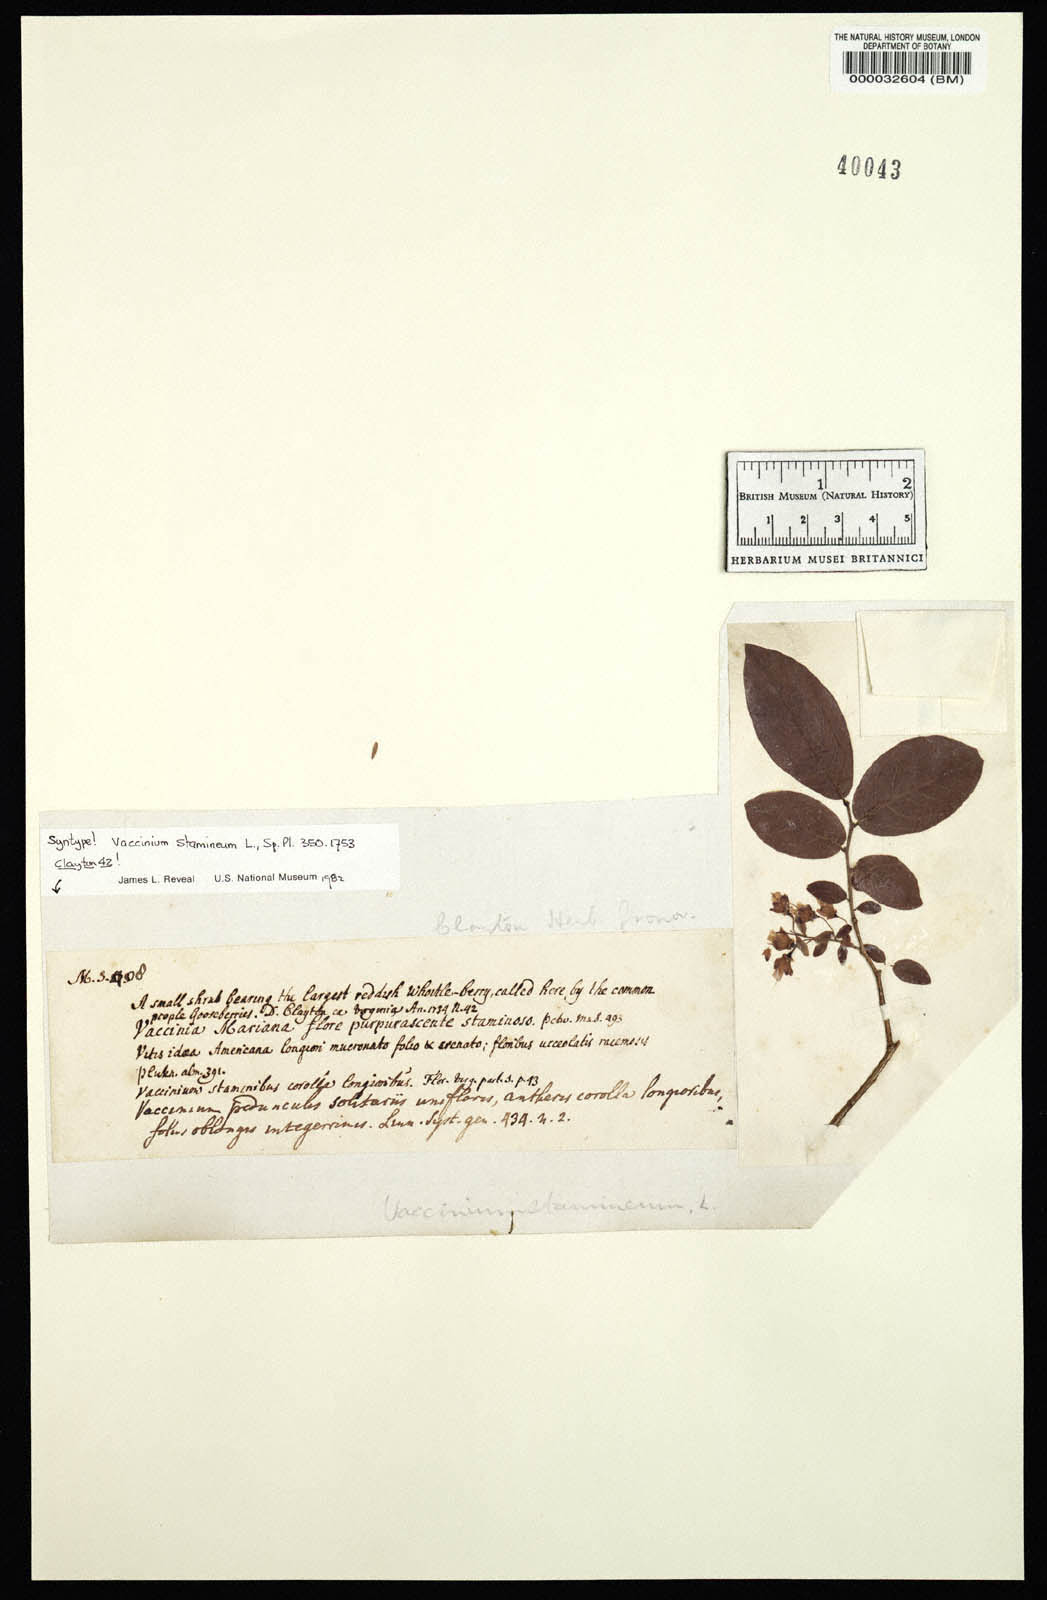 THE NATURAL HISTORY MUSEUM, LONDON
DEPARTMENT OF BOTANY
000032604 (BM)
40043
1 2
BRITISH MUSEUM (NATURAL HISTORY)
1 2 3 4 5
HERBARIUM MUSEI BRITANNICI
Syntype! Vaccinium stamineum L., Sp. Pl. 350. 1753
Clayton 42!
James L. Reveal U.S. National Museum 1982
Clayton Herb Gronov.
A small shrub bearing the largest reddish Whortle-berry, called here by the common
people Gooseberries. D. Clayton ex Virginia An. 1734 N. 42
Vaccinia Mariana flore purpurascente staminoso. Petiv. Mus. 493
Vitis idæa Americana longiori mucronato folio & crenato; floribus urceolatis racemosis
Plukn. alm. 391.
Vaccinium staminibus corollâ longioribus. Flor. Virg. part. 1. p. 43
Vaccinium pedunculis solitariis unifloris, antheris corolla longioribus,
foliis oblongis integerrimis. Linn. Syst. gen. 434. n. 2.
Vaccinium stamineum, L.